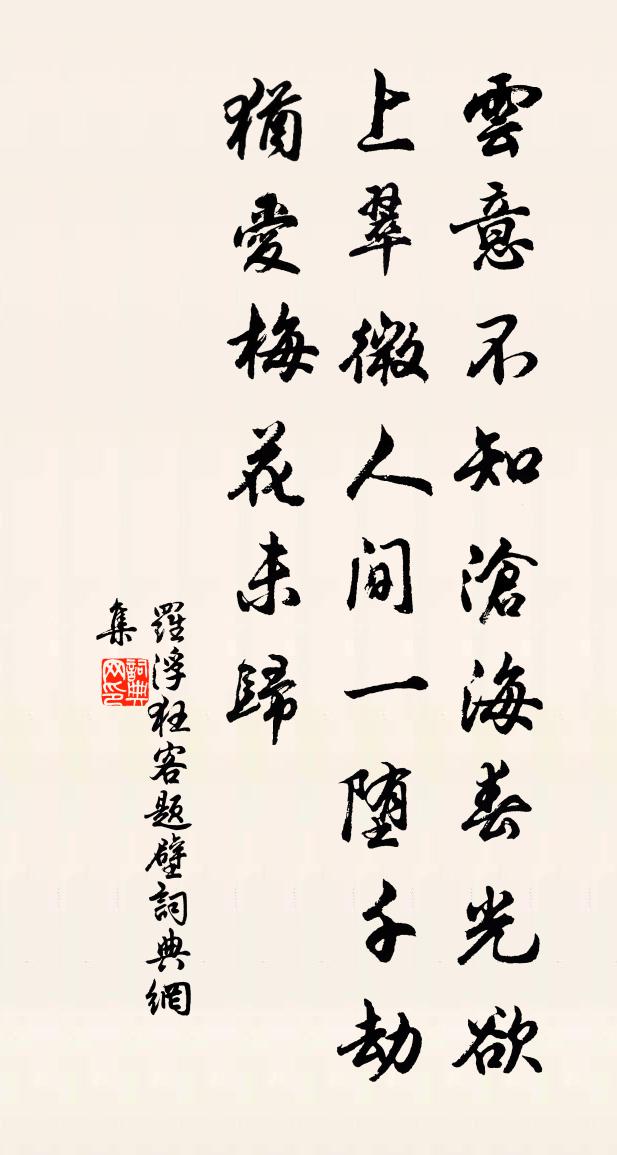 雲意不知滄海春光欲
上翠微人间一堕千劫
猶愛梅花未歸
羅浮狂客題壁詞典網
集
詞典
网印